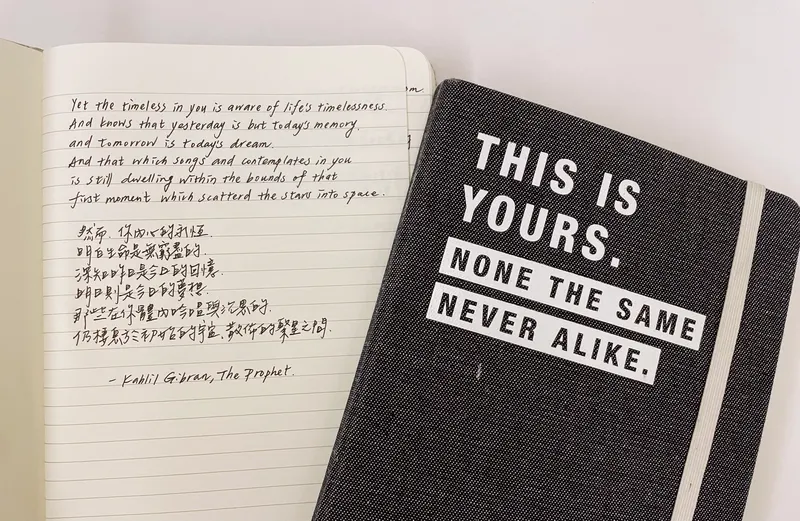 Yet the timeless in you is aware of life's timelessness.
And knows that yesterday is but today's memory,
and tomorrow is today's dream.
And that which songs and contemplates in you
is still dwelling within the bounds of that
first moment which scatterd the stars into space.
然而, 你內心的永恆,
明白生命是無窮盡的.
深知昨日是今日的回憶,
明日則是今日的夢想.
那些在你體內吟唱與沉思的,
仍棲息於初始的宇宙、散佈的繁星之間.
- Kahlil Gibran, The Prophet.
THIS IS
YOURS.
NONE THE SAME
NEVER ALIKE.